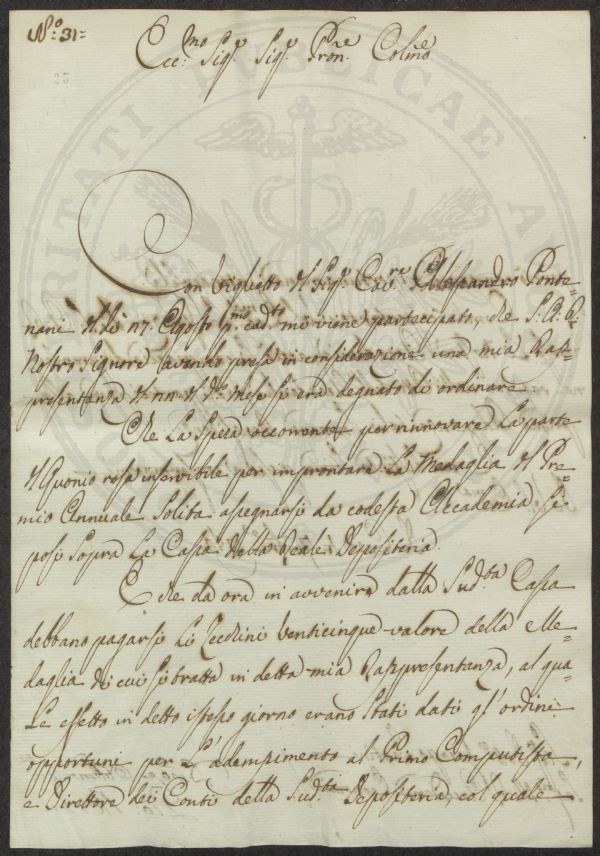 N.o 31=
Ecc.mo Sig.r Sig.r Pron.e Colmo
PROSPERITATI PUBLICAE AUGENDAE
Con biglietto del Sig.r Cav.re Alessandro Ponte=
nani del dì 27. Agosto p.mo cad.to mi viene partecipato, che S. A. R.
Nostro Signore avendo presa in considerazione una mia Rap=
presentanza del 22. del d.o Mese si era degnato di ordinare
Che La Spesa occorrente per rinnovare La parte
del Quonio resa inservibile per improntare La Medaglia del Pre=
mio Annuale Solita assegnarsi da codesta Accademia si
posi Sopra La Cassa della Reale Depositeria.
E che da ora in avvenire dalla Sud.ta Cassa
debbano pagarsi Li Zecchini Venticinque valore della Me=
daglia di cui si tratta in detta mia Rappresentanza, al qua=
Le effetto in detto istesso giorno erano Stati dati gl'ordini
opportuni per L'adempimento al Primo Computista,
e Direttore dei Conti della Sud.ta Depositeria, col quale